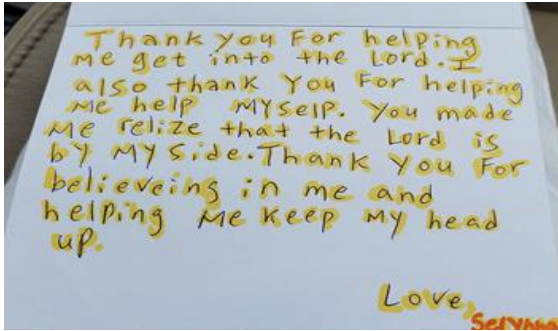 Thank You For helping
me get into the Lord. I
also thank You For helping
me help Myself. You made
me relize that the Lord is
by My side. Thank You For
believeing in me and
helping me keep My head
up.
Love,